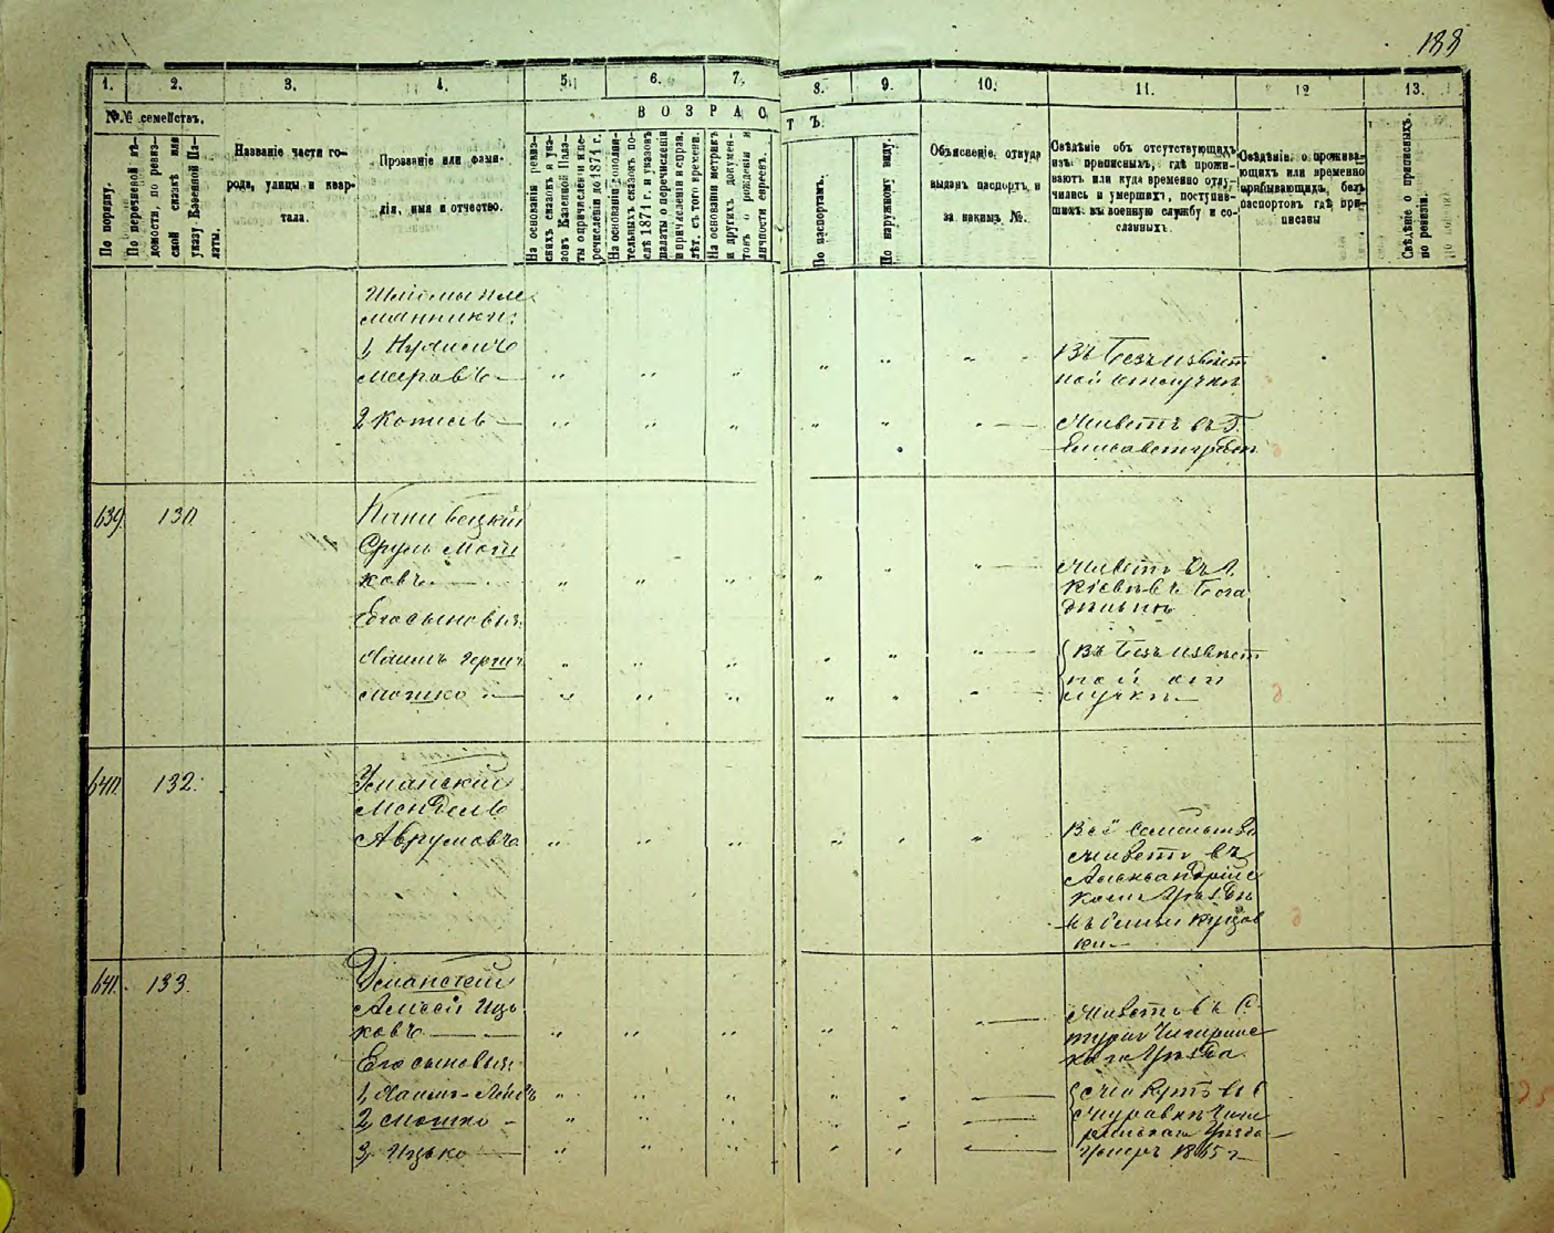 188
1. 2. 3. 4. 5. 6. 7. 8. 9. 10. 11. 12 13.
№№ семействъ.
В О З Р А С Т Ъ.
По порядку.
По перечневой вѣ-
домости, по ревиз-
ской сказкѣ или
указу Казенной Па-
латы.
Названіе части го-
рода, улицы и квар-
тала.
Прозваніе или фами-
лія, имя и отчество.
На основаніи ревиз-
скихъ сказокъ и ука-
зовъ Казенной Пала-
ты о причисленіи и пе-
речисленіи до 1871 г.
На основаніи дополни-
тельныхъ сказокъ по-
слѣ 1871 г. и указовъ
палаты о перечисленіи
и причисленіи и справ.
лѣт. съ того времени.
На основаніи метрикъ
и другихъ докумен-
товъ о рожденіи и
личности евреевъ.
По паспортамъ.
По наружному виду.
Объясненіе, откуда
выданъ паспортъ и
за какимъ №.
Свѣдѣніе объ отсутствующихъ
изъ приписныхъ, гдѣ прожи-
ваютъ или куда временно отлу-
чились и умершихъ, поступив-
шихъ въ военную службу и со-
сланныхъ.
Свѣдѣніе о прожива-
ющихъ или временно
прибывающихъ, безъ
паспортовъ гдѣ при-
писаны
Свѣдѣніе о приписныхъ
по ревизіи.
племянники:
1,
Мееровъ —
Въ безъизвѣст
ной отлучкѣ
2
Живетъ въ Г.
Елисаветградѣ
639. 130.
Срулъ Мош
ковъ —
Живетъ въ г.
Кіевѣ въ Бога
дѣльнѣ
Его сыновья:
Хаимъ Герш
Въ безъизвѣст
ной от
лучкѣ —
Мошко —
640. 132.
Уманскій
Мендель
Аврумовъ
Всё семейство
живетъ въ
Александрійс
комъ Уѣздѣ
641. 133.
Уманскій
Иць
ковъ —
Живетъ въ С.
Чигиринс
каго Уѣзда
Его сыновья:
1, Хаимъ-Лейбъ
2, Мошко —
3, Ицько —
{ Живутъ въ с
Уѣзда —
Умеръ 1865 г —